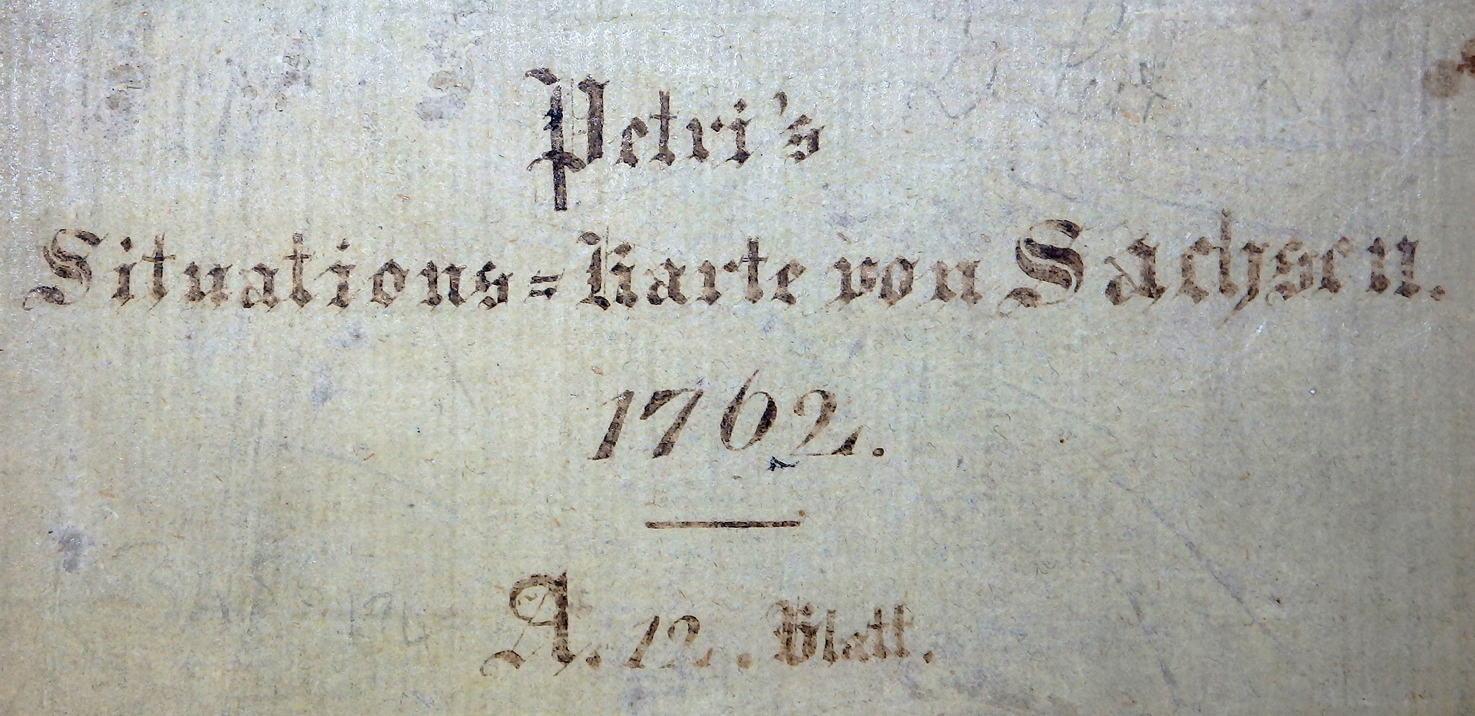 Petri's
Situations=Karte von Sachsen.
1762.
A. 12. Blatt.